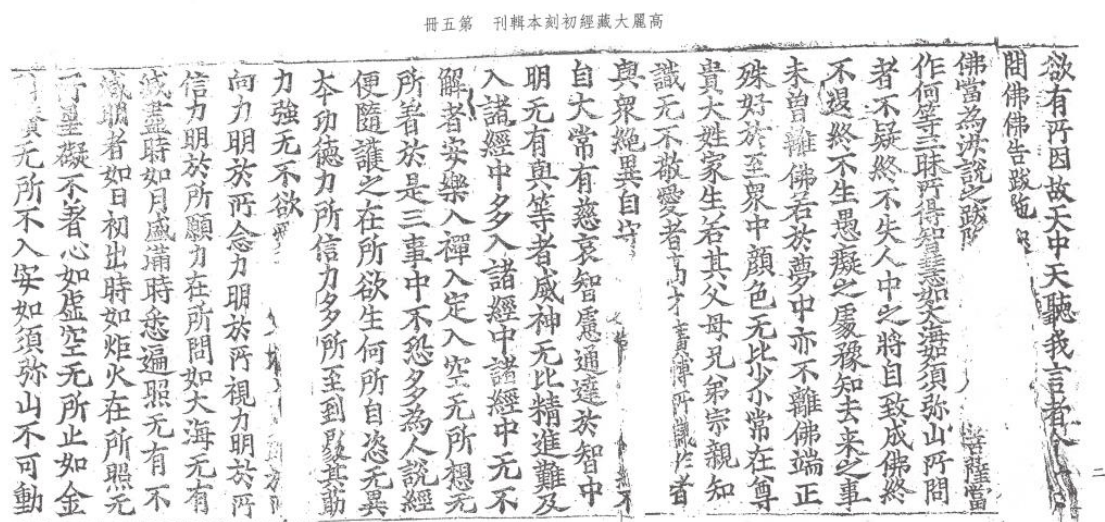 高麗大藏經初刻本輯刊　第五冊
欲有所因故天中天聽我言者
問佛佛告跋陁
佛當為汝說之跋　菩薩當
作何等三昧所得智慧如大海如須弥山所問
者不疑終不失人中之將自致成佛終
不還終不生愚癡之處豫知去来之事
未曾離佛若於夢中亦不離佛端正
殊好於至衆中顔色无比少小常在尊
貴大姓家生若其父母兄弟宗親知
識无不敬愛者高才廣博所議作者
與衆絶異自守
自大常有慈哀智慮通達於智中
明无有與等者威神无比精進難及
入諸經中多入諸經中諸經中无不
解者安樂入禪入定入空无所想无
所著於是三事中不恐多為人說經
便隨護之在所欲生何所自恣无異
本功德力所信力多所至到其筋
力強无不欲
向力明於所念力明於所視力明於所
信力明於所願力在所問如大海无有
減盡時如月盛滿時悉遍照无有不
感明者如日初出時如炬火在所照无
所罣礙不著心如虛空无所止如金
无所不入安如須弥山不可動
二